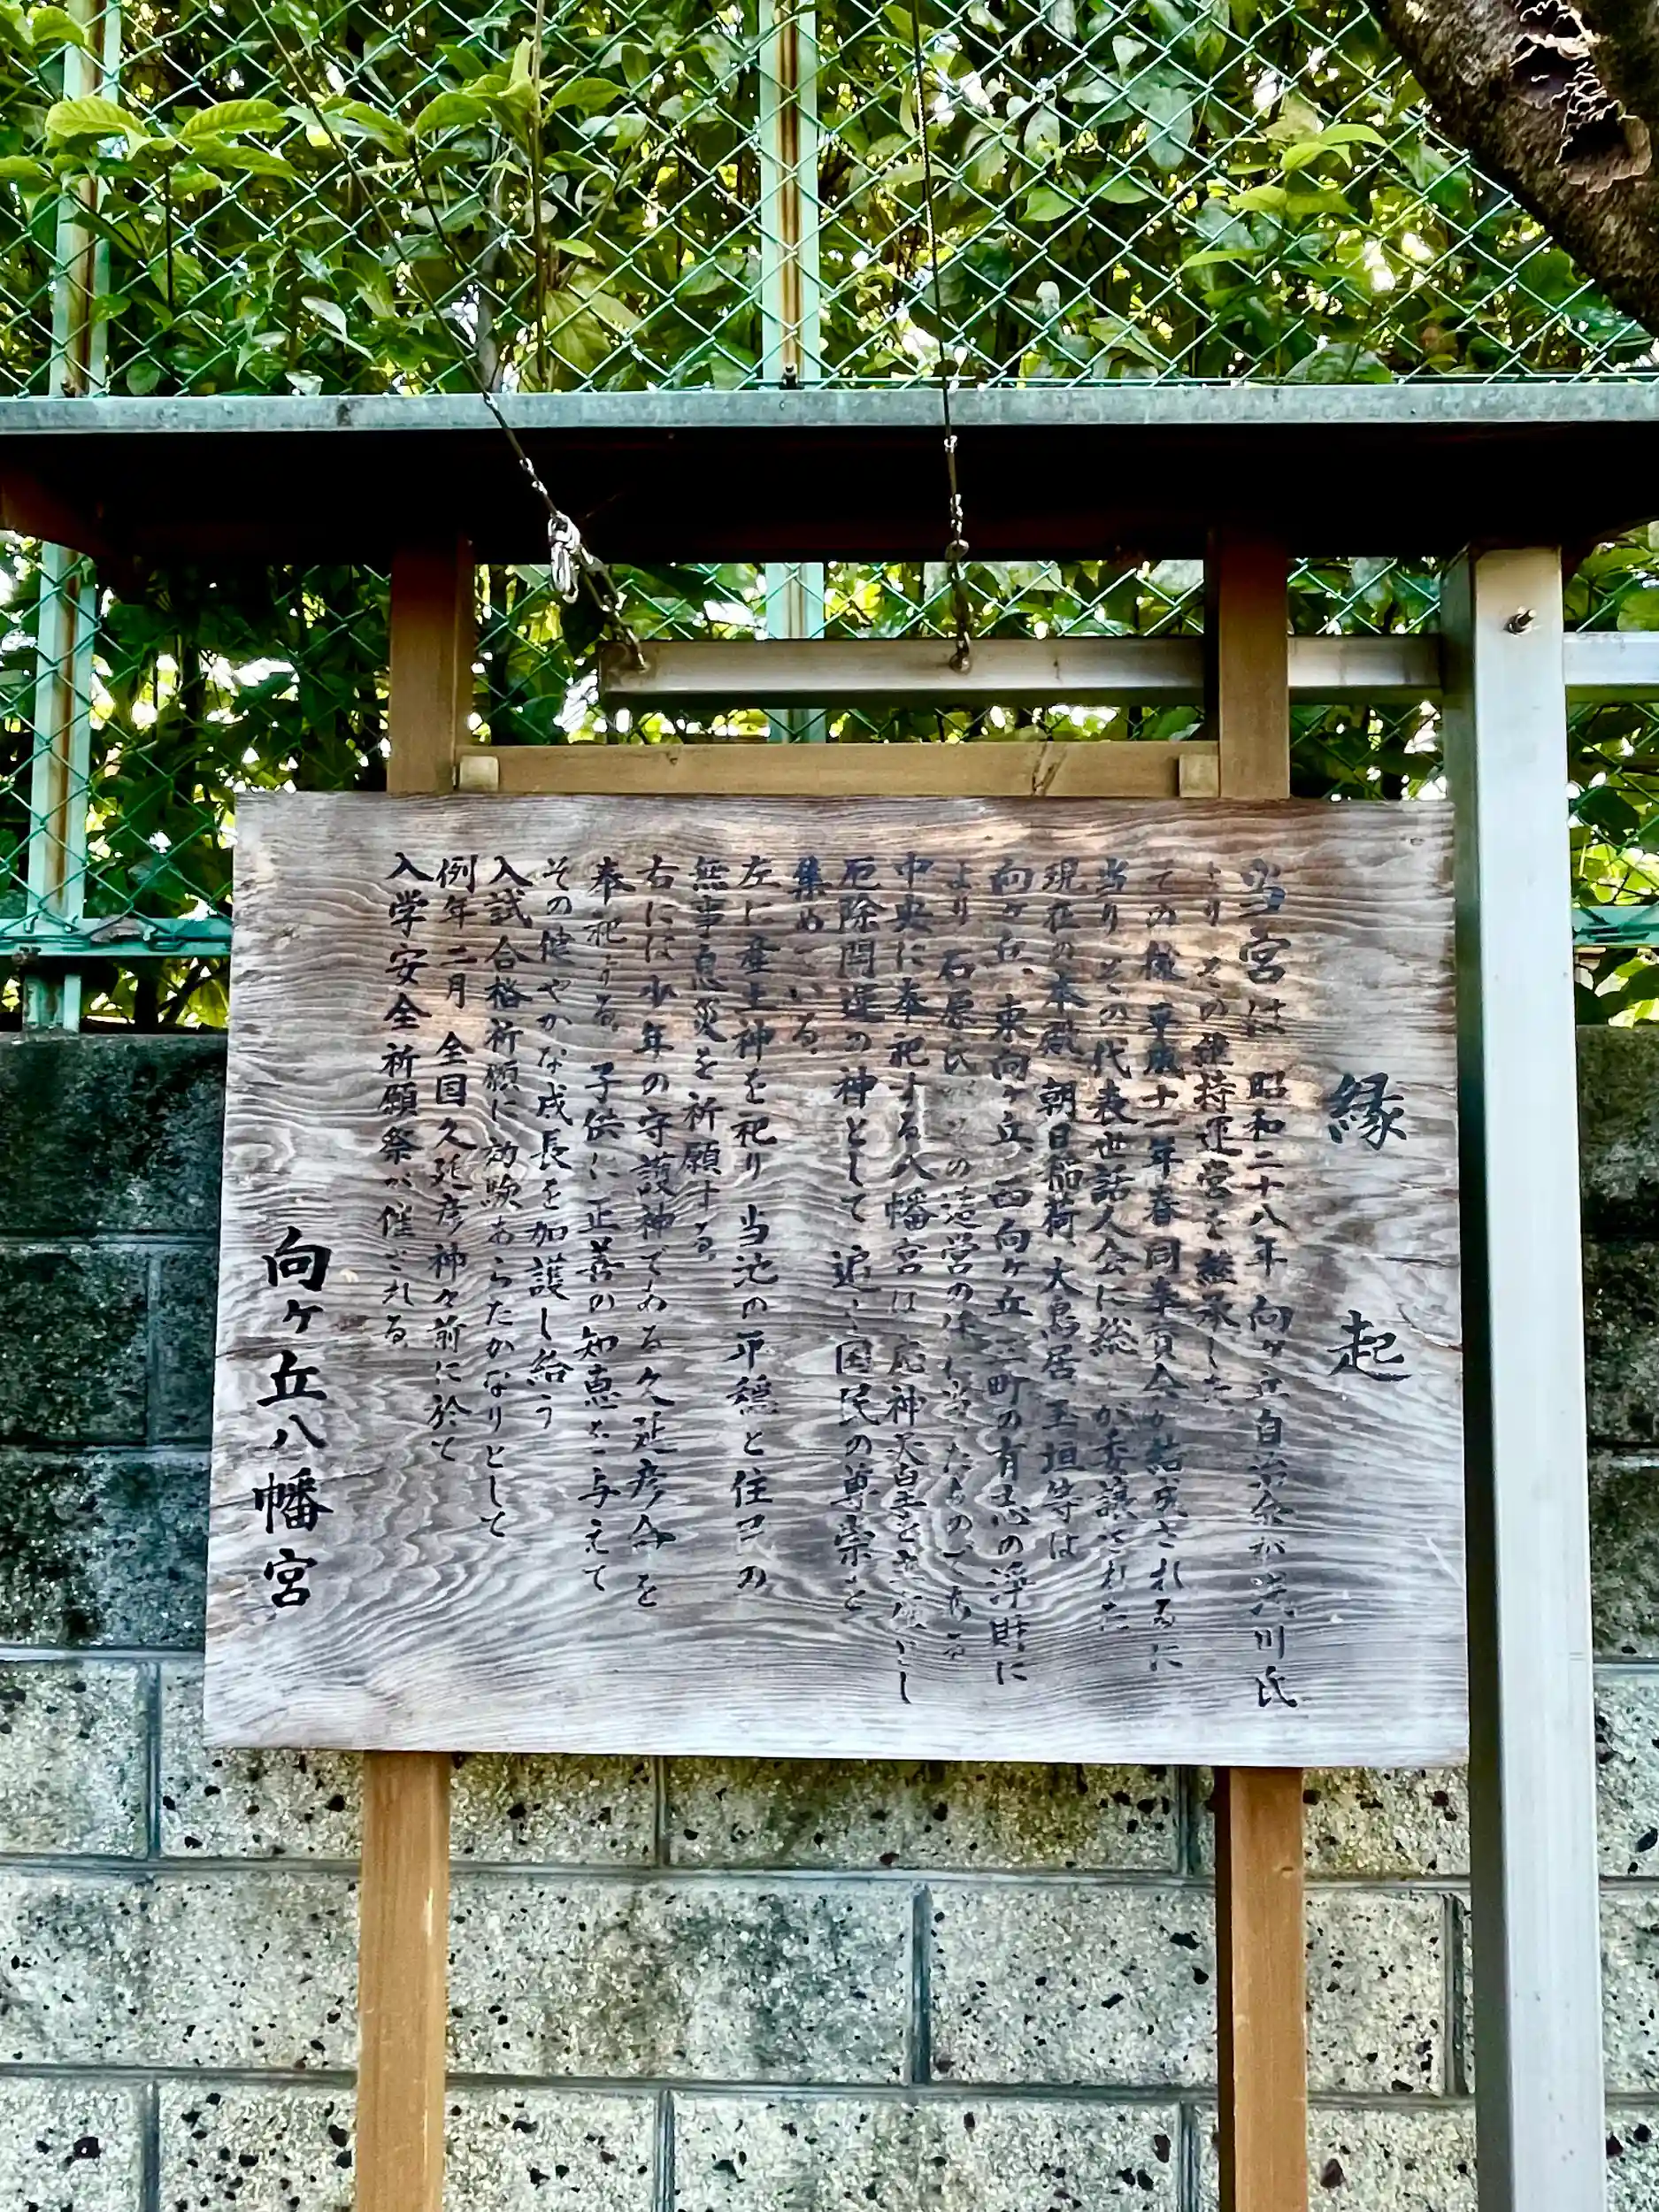 縁起
当宮は 昭和二十八年 向ヶ丘自治会が 川氏
より その維持運営を継承した
その後 平成十一年春 同奉賛会が結成されるに
当り その代表世話人会に総 が委譲された
現在の本殿 朝日稲荷、大鳥居 玉垣等は
向ヶ丘、東向ヶ丘、西向ヶ丘 三町の有志の浄財に
より 石原氏が その造営の に当ったものである
中央に奉祀する八幡宮は応神天皇を とし
厄除開運の神として 追々国民の尊崇を
集めている。
左に産土神を祀り 当地の平穏と住民の
無事息災を祈願する。
右には少年の守護神である久延彦命を
奉祀する。子供に正善の知恵を与えて
その健やかな成長を加護し給う
入試 合格祈願に効験あらたかなりとして
例年 二月 全国 久延彦神々前に於て
入学安全祈願祭が催される
向ヶ丘八幡宮